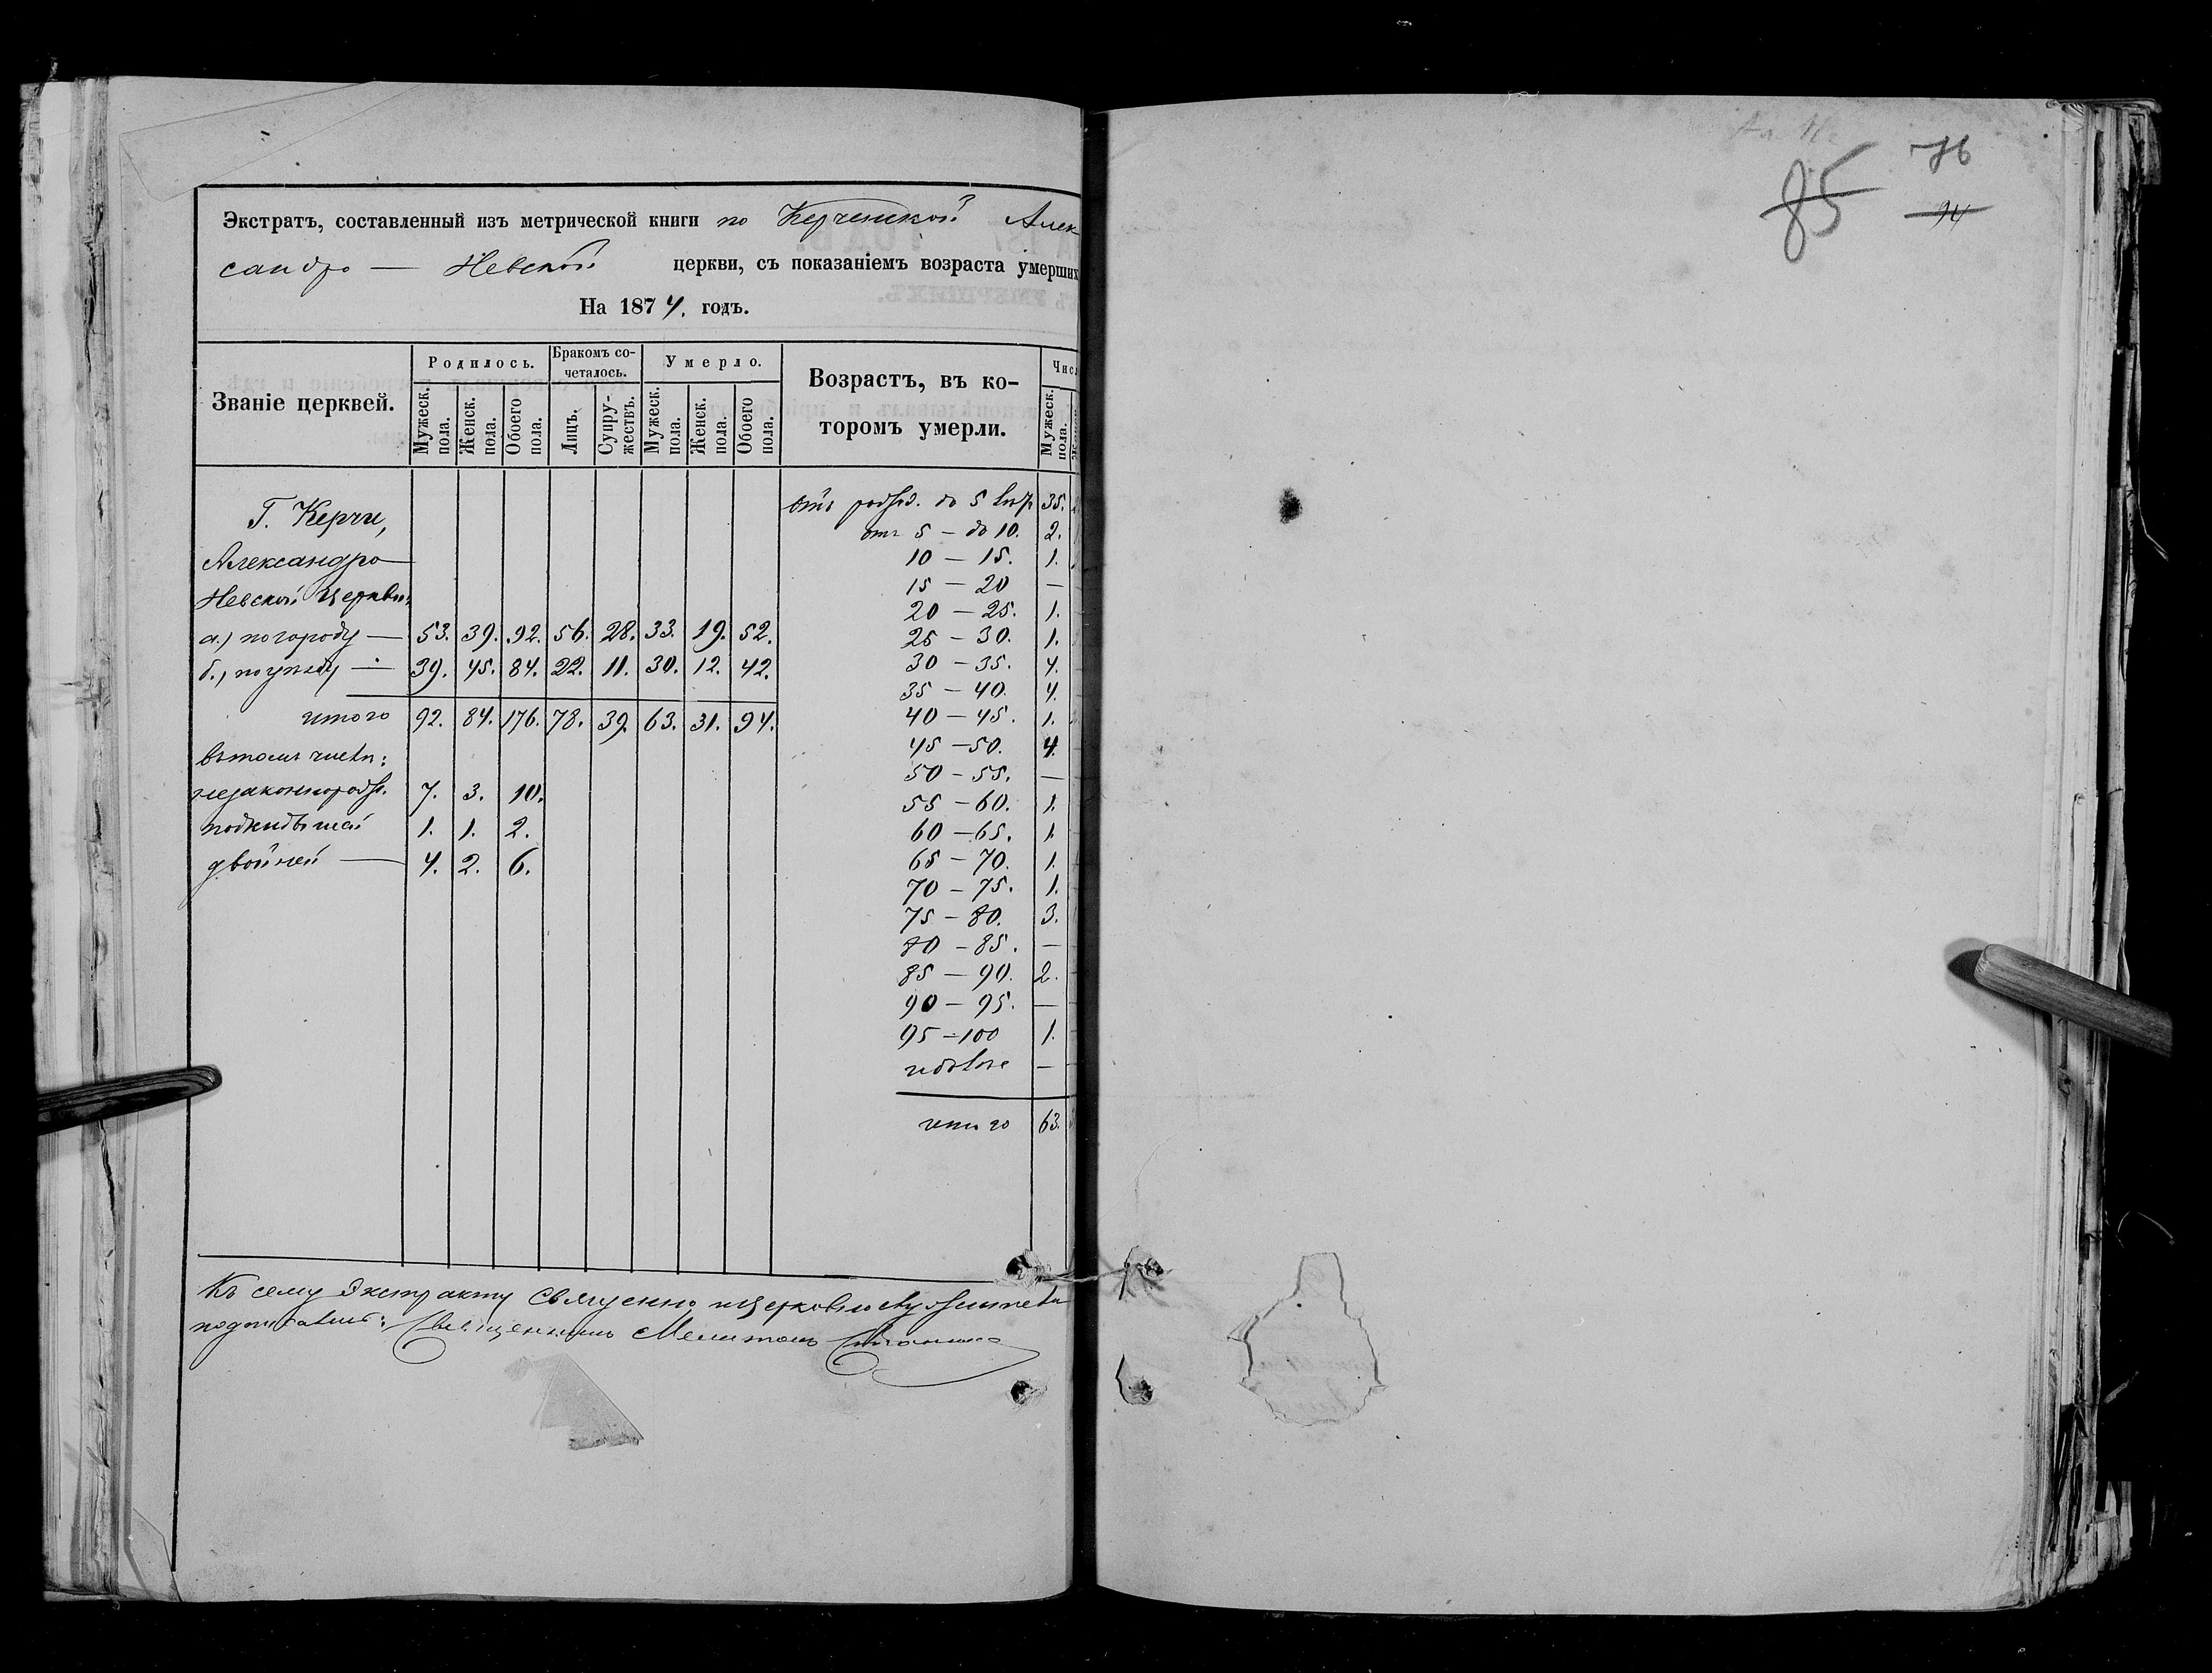 Экстратъ, составленный изъ метрической книги по Керченской Алек
сандро — Невской церкви, съ показаніемъ возраста умерших
На 1874. годъ.
Званіе церквей.
Родилось.
Бракомъ со-
четалось.
Умерло.
Возрастъ, въ ко-
торомъ умерли.
Чис
Мужеск. пола.
Женск. пола.
Обоего пола.
Лицъ.
Супру-
жествъ.
Мужеск. пола.
Женск. пола.
Обоего пола.
Мужеск. пола.
Г. Керчи,
Александро—
Невской церкви:
а.) по городу — 53. 39. 92. 56. 28. 33. 19. 52.
б.) по уѣзду — 39. 45. 84. 22. 11. 30. 12. 42.
итого 92. 84. 176. 78. 39. 63. 31. 94.
въ томъ числѣ:
незаконнорожд. 7. 3. 10.
подкидышей 1. 1. 2.
двойней — 4. 2. 6.
отъ рожд. до 5 лѣт 35.
отъ 5 — до 10. 2.
10 — 15. 1.
15 — 20 —
20 — 25. 1.
25 — 30. 1.
30 — 35. 4.
35 — 40. 4.
40 — 45. 1.
45 — 50. 4.
50 — 55. —
55 — 60. 1.
60 — 65. 1.
65 — 70. 1.
70 — 75. 1.
75 — 80. 3.
80 — 85. —
85 — 90. 2.
90 — 95. —
95 — 100 1.
и болѣе —
итого 63.
Къ сему Экстракту Священно и церковнослужители
подписались: Священникъ Мелитонъ
76
85
94